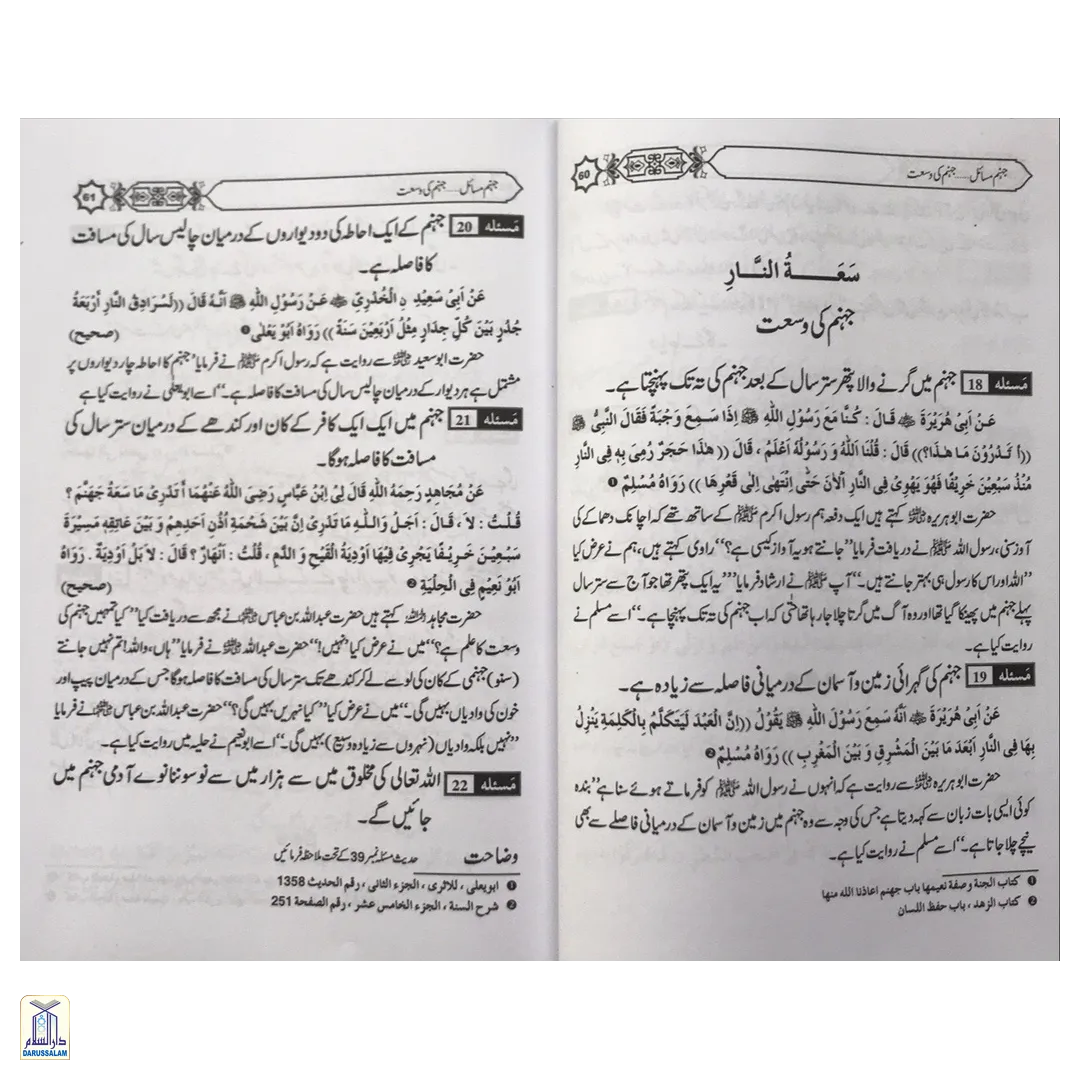 جہنم مسائل.....جہنم کی وسعت
60
سَعَـــةُ النَّـــارِ
جہنم کی وسعت
مَسئله 18 جہنم میں گرنے والا پتھر ستر سال کے بعد جہنم کی تہ تک پہنچتا ہے۔
عَنْ اَبِىْ هُرَيْرَةَ ﷺ قَالَ : كُنَّا مَعَ رَسُوْلِ اللّٰهِ ﷺ اِذَا سَمِعَ وَجْبَةً فَقَالَ النَّبِىُّ ﷺ
((اَ تَدْرُوْنَ مَا هٰذَا؟)) قَالَ : قُلْنَا اَللّٰهُ وَ رَسُوْلُهٗ اَعْلَمُ ، قَالَ (( هٰذَا حَجَرٌ رُمِىَ بِهٖ فِى النَّارِ
مُنْذُ سَبْعِيْنَ خَرِيْفًا فَهُوَ يَهْوِىْ فِى النَّارِ اَلْاٰنَ حَتّٰى اِنْتَهٰى اِلٰى قَعْرِهَا )) رَوَاهُ مُسْلِمٌ ❶
حضرت ابو ہریرہ رضی اللہ عنہ کہتے ہیں ایک دفعہ ہم رسول اکرم ﷺ کے ساتھ تھے کہ اچانک دھماکے کی
آواز سنی، رسول اللہ ﷺ نے دریافت فرمایا ”جانتے ہو یہ آواز کیسی ہے؟“ راوی کہتے ہیں، ہم نے عرض کیا
”اللہ اور اس کا رسول ہی بہتر جانتے ہیں۔“ آپ ﷺ نے ارشاد فرمایا ”یہ ایک پتھر تھا جو آج سے ستر سال
پہلے جہنم میں پھینکا گیا تھا اور وہ آگ میں گرتا چلا جا رہا تھا حتٰی کہ اب جہنم کی تہ تک پہنچا ہے۔“ اسے مسلم نے
روایت کیا ہے۔
مَسئله 19 جہنم کی گہرائی زمین و آسمان کے درمیانی فاصلہ سے زیادہ ہے۔
عَنْ اَبِىْ هُرَيْرَةَ اَنَّهٗ سَمِعَ رَسُوْلَ اللّٰهِ ﷺ يَقُوْلُ ((اِنَّ الْعَبْدَ لَيَتَكَلَّمُ بِالْكَلِمَةِ يَنْزِلُ
بِهَا فِى النَّارِ اَبْعَدَ مَا بَيْنَ الْمَشْرِقِ وَ بَيْنَ الْمَغْرِبِ )) رَوَاهُ مُسْلِمٌ ❷
حضرت ابو ہریرہ رضی اللہ عنہ سے روایت ہے کہ انہوں نے رسول اللہ ﷺ کو فرماتے ہوئے سنا ہے ”بندہ
کوئی ایسی بات زبان سے کہہ دیتا ہے جس کی وجہ سے وہ جہنم میں زمین و آسمان کے درمیانی فاصلے سے بھی
نیچے چلا جاتا ہے۔“ اسے مسلم نے روایت کیا ہے۔
❶ كتاب الجنة وصفة نعيمها باب جهنم اعاذنا الله منها
❷ كتاب الزهد ، باب حفظ اللسان
جہنم مسائل.....جہنم کی وسعت
61
مَسئله 20 جہنم کے ایک احاطہ کی دو دیواروں کے درمیان چالیس سال کی مسافت
کا فاصلہ ہے۔
عَنْ اَبِىْ سَعِيْدٍ ۨالْخُدْرِىِّ عَنْ رَسُوْلِ اللّٰهِ ﷺ اَنَّهٗ قَالَ ((لَسُرَادِقُ النَّارِ اَرْبَعَةُ
جُدُرٍ بَيْنَ كُلِّ جِدَارٍ مِثْلُ اَرْبَعِيْنَ سَنَةً )) رَوَاهُ اَبُوْ يَعْلٰى ❶ (صحيح)
حضرت ابوسعید رضی اللہ عنہ سے روایت ہے کہ رسول اکرم ﷺ نے فرمایا ”جہنم کا احاطہ چار دیواروں پر
مشتمل ہے ہر دیوار کے درمیان چالیس سال کی مسافت کا فاصلہ ہے۔“ اسے ابو یعلٰی نے روایت کیا ہے
مَسئله 21 جہنم میں ایک ایک کافر کے کان اور کندھے کے درمیان ستر سال کی
مسافت کا فاصلہ ہوگا۔
عَنْ مُجَاهِدٍ رَحِمَهُ اللّٰهُ قَالَ لِىْ اِبْنُ عَبَّاسٍ رَضِىَ اللّٰهُ عَنْهُمَا اَ تَدْرِىْ مَا سَعَةُ جَهَنَّمَ ؟
قُلْتُ : لَا ، قَالَ : اَجَلْ وَاللّٰهِ مَا تَدْرِىْ اِنَّ بَيْنَ شَحْمَةِ اُذُنِ اَحَدِهِمْ وَ بَيْنَ عَاتِقِهٖ مَسِيْرَةَ
سَبْعِيْنَ خَرِيْفًا يَجْرِىْ فِيْهَا اَوْدِيَةُ الْقَيْحِ وَ الدَّمِ ، قُلْتُ : اَنْهَارٌ؟ قَالَ : لَا بَلْ اَوْدِيَةٌ . رَوَاهُ
اَبُوْ نَعِيْمٍ فِى الْحِلْيَةِ ❷ (صحيح)
حضرت مجاہد رحمہ اللہ کہتے ہیں حضرت عبداللہ بن عباس نے مجھ سے دریافت کیا ”کیا تمہیں جہنم کی
وسعت کا علم ہے؟“ میں نے عرض کیا ”نہیں!“ حضرت عبداللہ نے فرمایا ”ہاں، واللہ! تم نہیں جانتے
(سنو) جہنمی کے کان کی لو سے لے کر کندھے تک ستر سال کی مسافت کا فاصلہ ہوگا جس کے درمیان پیپ اور
خون کی وادیاں بہیں گی۔“ میں نے عرض کیا ”کیا نہریں بہیں گی؟“ حضرت عبداللہ بن عباس نے فرمایا
”نہیں بلکہ وادیاں (نہروں سے زیادہ وسیع) بہیں گی۔“ اسے ابونعیم نے حلیہ میں روایت کیا ہے۔
مَسئله 22 اللہ تعالی کی مخلوق میں سے ہزار میں سے نو سو ننانوے آدمی جہنم میں
جائیں گے۔
وضاحت حدیث مسئلہ نمبر 39 کے تحت ملاحظہ فرمائیں
❶ ابويعلى ، للاثرى ، الجزء الثانى ، رقم الحديث 1358
❷ شرح السنة ، الجزء الخامس عشر ، رقم الصفحة 251
دارالسلام
DARUSSALAM